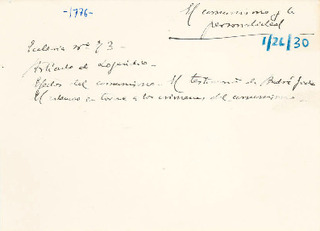 -1776-
El comunismo y la
personalidad
1/26/30
Esclavia nº 73-
Artículo de
Efectos del comunismo. El testimonio de André
El silencio en torno a los crímenes del comunismo